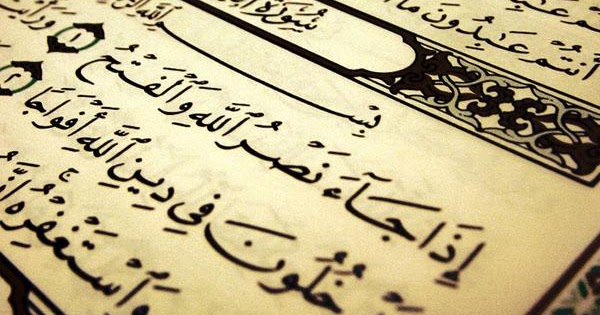 أَنتُمْ عَٰبِدُونَ مَآ
سُورَةُ
بِسْمِ ٱللَّهِ
إِذَا جَآءَ نَصْرُ ٱللَّهِ وَٱلْفَتْحُ ١ وَرَأَيْتَ
خُلُونَ فِى دِينِ ٱللَّهِ أَفْوَاجًا ٢
وَٱسْتَغْفِرْهُ